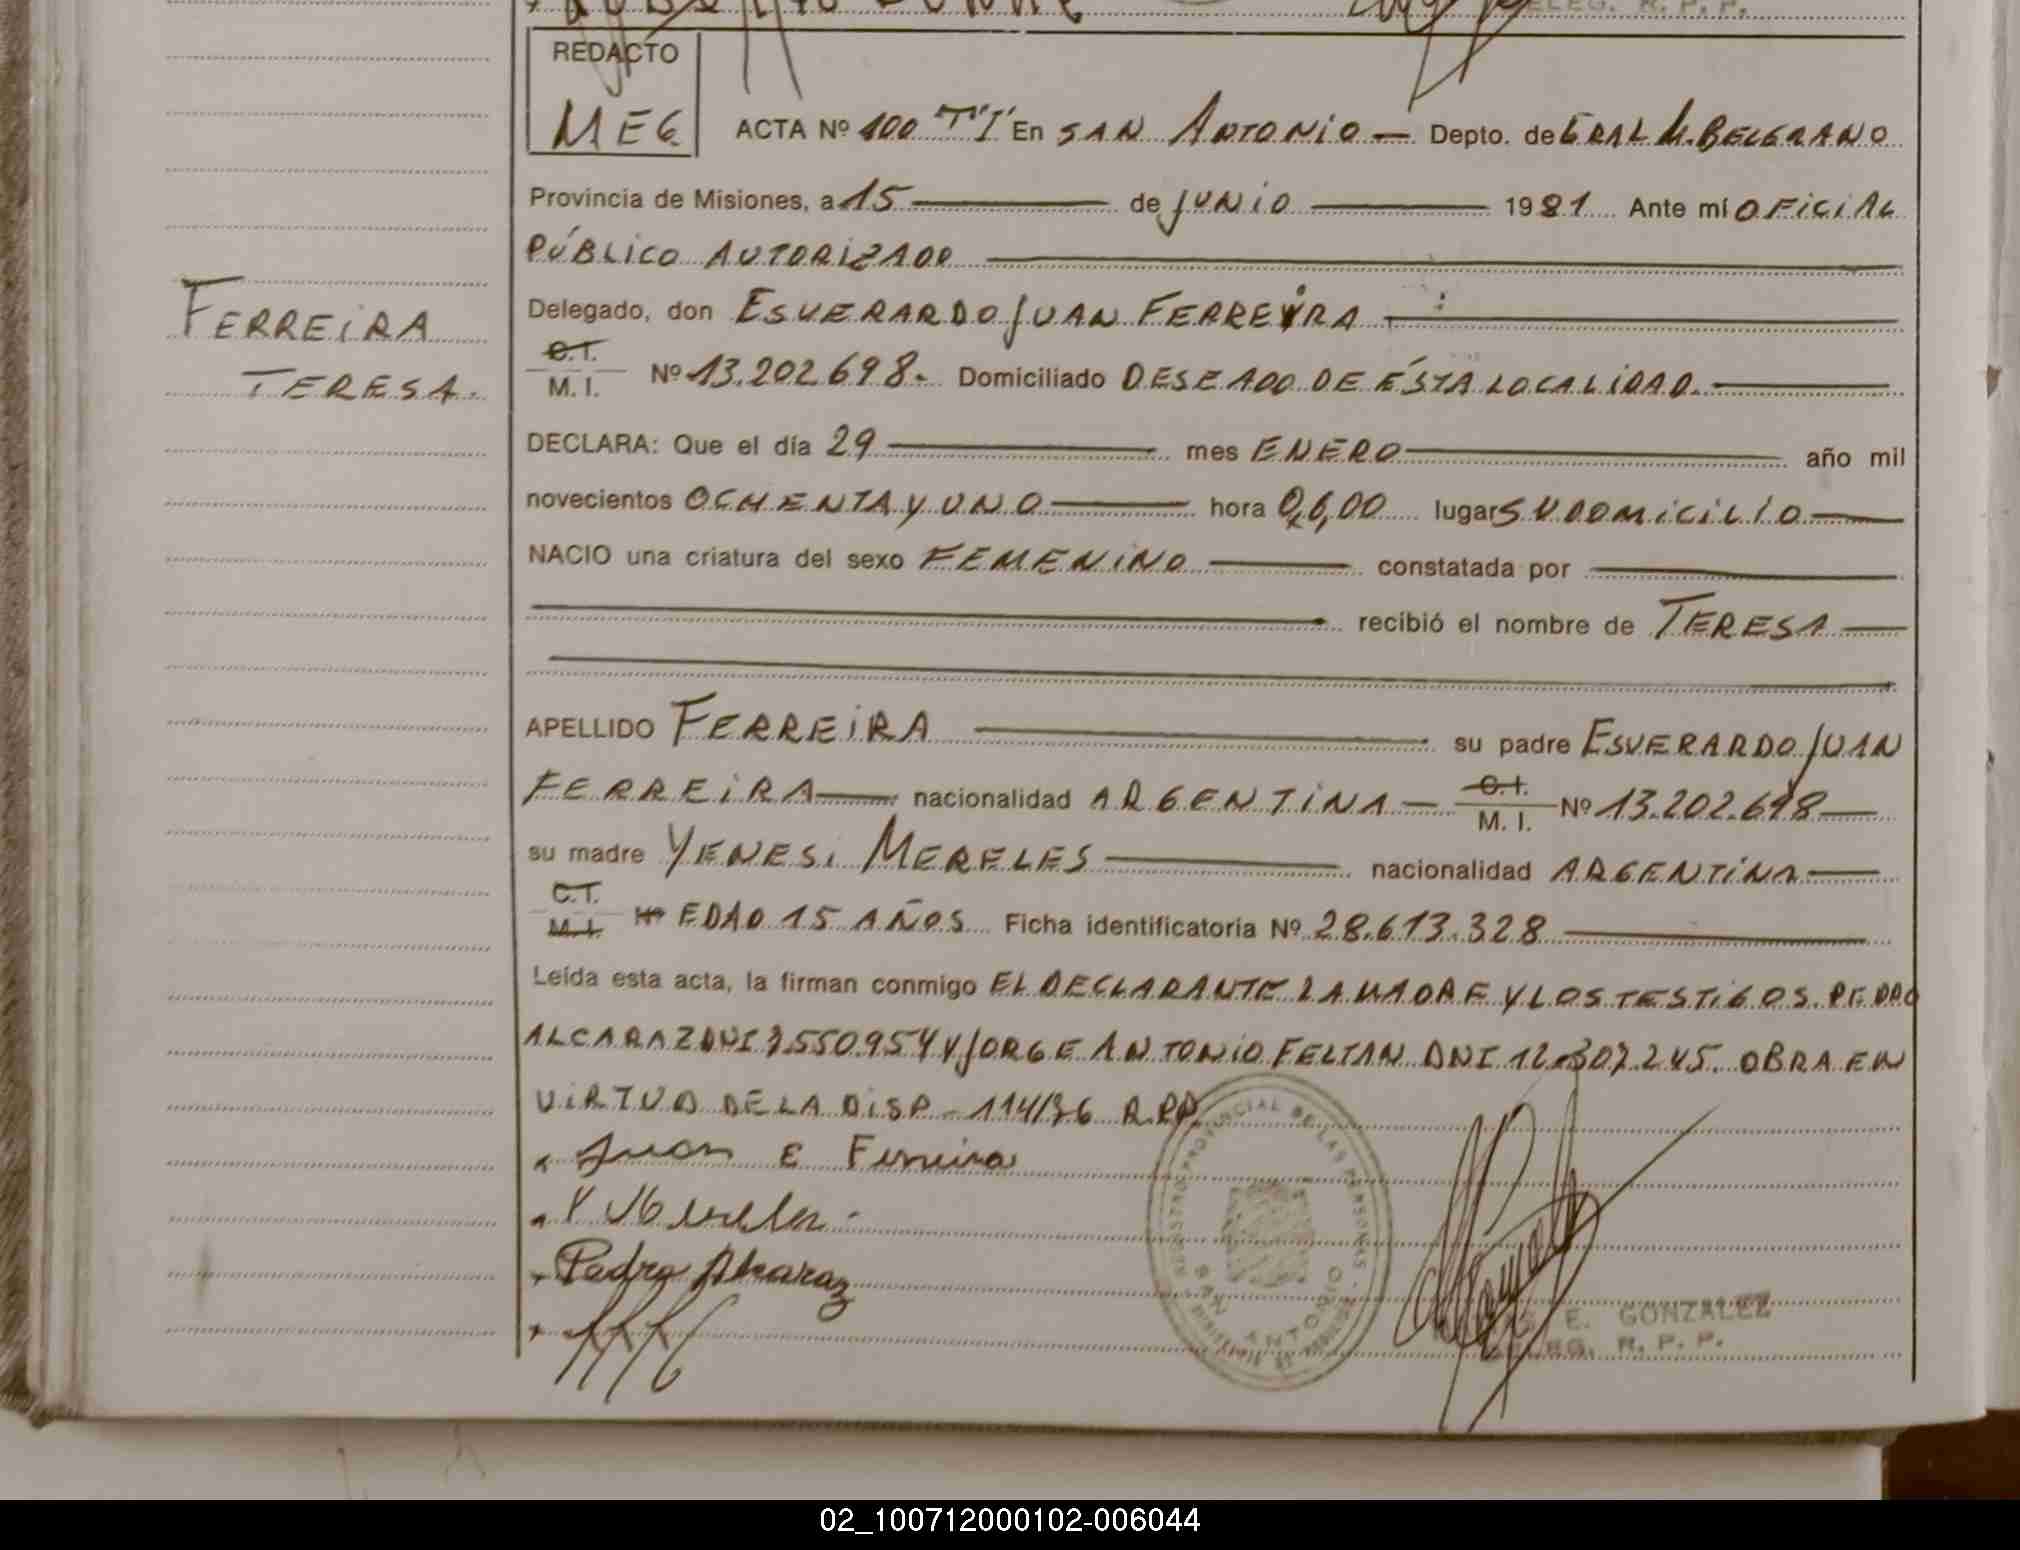 DELEG. R. P. P.
REDACTO
MEG
ACTA Nº 100 T"I" En SAN ANTONIO — Depto. de GRAL M. BELGRANO
Provincia de Misiones, a 15 — de JUNIO — 1981 Ante mí OFICIAL
PÚBLICO AUTORIZADO —
Delegado, don ESVERARDO JUAN FERREYRA —
FERREIRA
TERESA.
C.I.
M. I. Nº 13.202.698. Domiciliado DESEADO DE ÉSTA LOCALIDAD. —
DECLARA: Que el día 29 — mes ENERO — año mil
novecientos OCHENTA y UNO — hora 06,00 lugar SU DOMICILIO —
NACIO una criatura del sexo FEMENINO — constatada por —
— recibió el nombre de TERESA —
APELLIDO FERREIRA — su padre ESVERARDO JUAN
FERREIRA — nacionalidad ARGENTINA — C.I. M. I. Nº 13.202.698 —
su madre YENESI MERELES — nacionalidad ARGENTINA —
C.I. M.I. Nº EDAD 15 AÑOS Ficha identificatoria Nº 28.613.328 —
Leída esta acta, la firman conmigo EL DECLARANTE LA MADRE Y LOS TESTIGOS PEDRO
ALCARAZ DNI 7.550.954 Y JORGE ANTONIO FELTAN DNI 12.307.245. OBRA EN
VIRTUD DE LA DISP - 114/76 R.P.P.
Juan E Ferreira
Y Mereles
Pedro Alcaraz
REGISTRO PROVINCIAL DE LAS PERSONAS
SAN ANTONIO
E. GONZALEZ
DELEG. R. P. P.
02_100712000102-006044